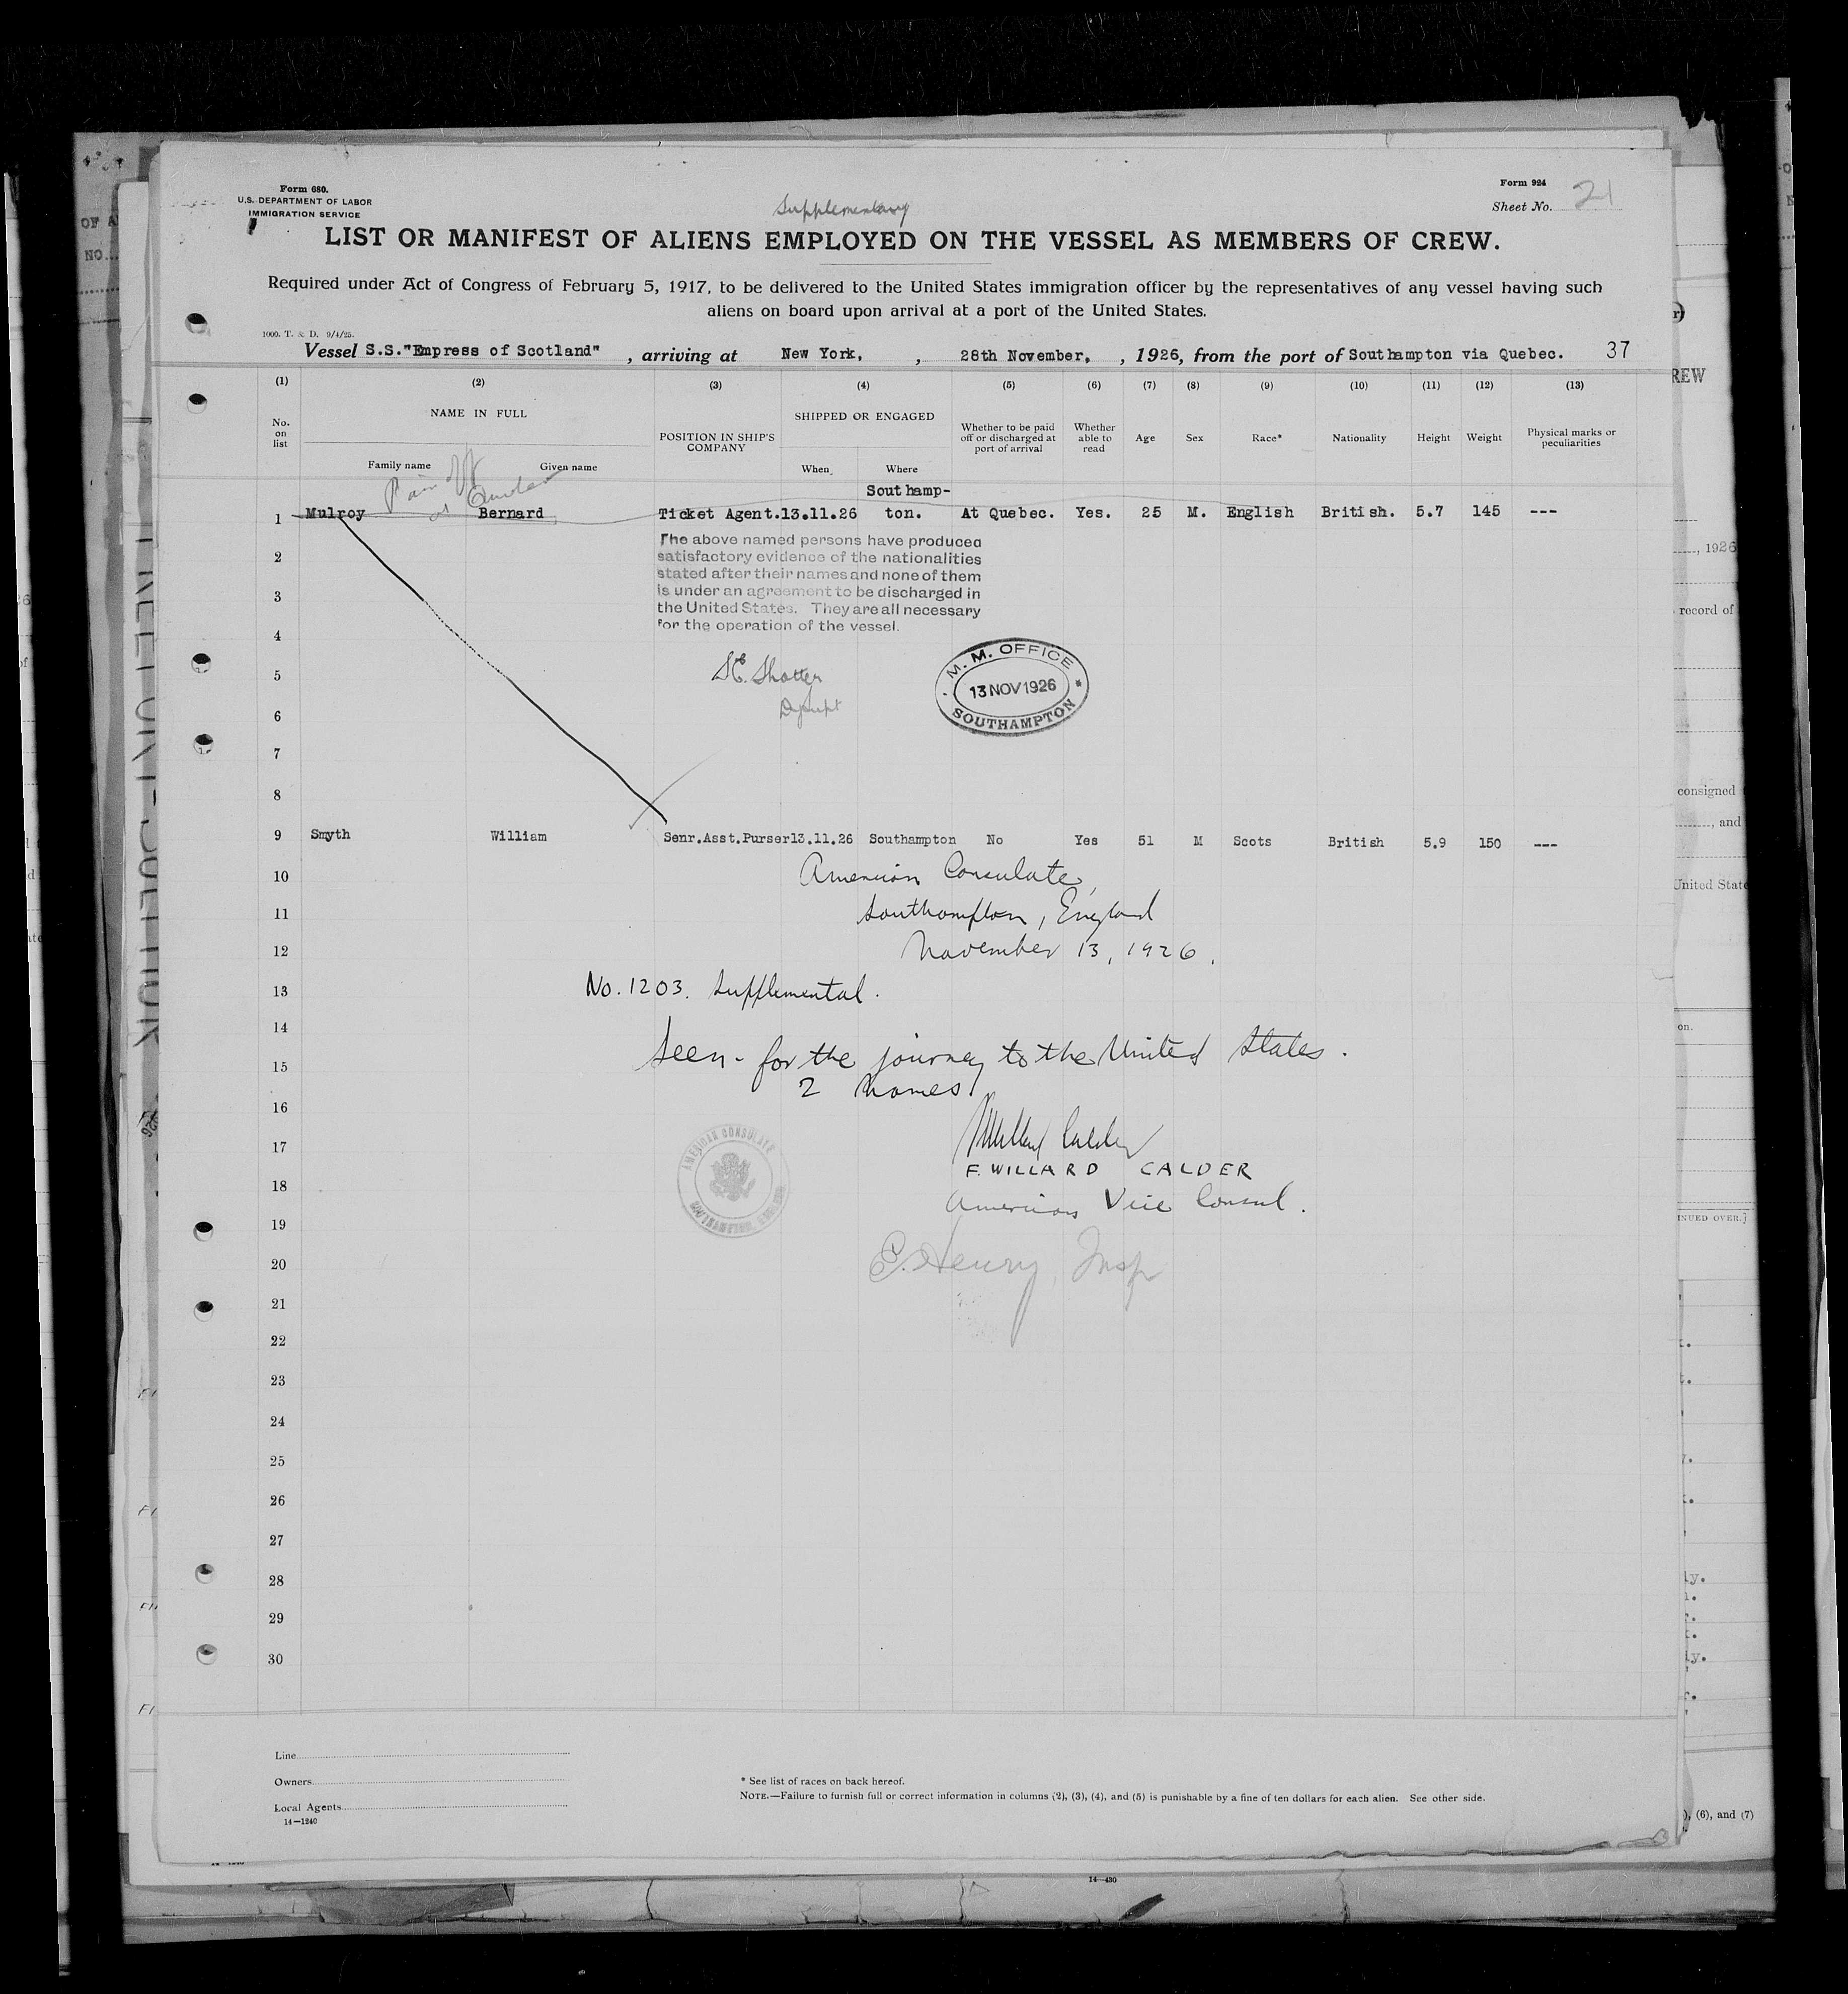 Form 680.
U.S. DEPARTMENT OF LABOR
IMMIGRATION SERVICE
Form 924
Sheet No. 21
Supplementary
LIST OR MANIFEST OF ALIENS EMPLOYED ON THE VESSEL AS MEMBERS OF CREW.
Required under Act of Congress of February 5, 1917, to be delivered to the United States immigration officer by the representatives of any vessel having such
aliens on board upon arrival at a port of the United States.
1000. T. & D. 9/4/25.
Vessel S.S."Empress of Scotland" , arriving at New York, , 28th November, , 1926, from the port of Southampton via Quebec. 37
(1) (2) (3) (4) (5) (6) (7) (8) (9) (10) (11) (12) (13)
No. on list
NAME IN FULL
Family name Given name
POSITION IN SHIP'S COMPANY
SHIPPED OR ENGAGED
When Where
Whether to be paid off or discharged at port of arrival
Whether able to read
Age Sex Race* Nationality Height Weight
Physical marks or peculiarities
Paid off
at Quebec
Southamp-
1 Mulroy Bernard Ticket Agent. 13.11.26 ton. At Quebec. Yes. 25 M. English British. 5.7 145 ---
The above named persons have produced
2 satisfactory evidence of the nationalities
stated after their names and none of them
3 is under an agreement to be discharged in
the United States. They are all necessary
4 for the operation of the vessel.
5
6
M. M. OFFICE
13 NOV 1926
SOUTHAMPTON
7
8
9 Smyth William Senr.Asst.Purser 13.11.26 Southampton No Yes 51 M Scots British 5.9 150 ---
10 American Consulate,
11 Southampton, England
12 November 13, 1926.
13 No. 1203. Supplemental.
14
15 Seen - for the journey to the United States.
2 names
16
17
F. WILLARD CALDER
18 American Vice Consul.
AMERICAN CONSULATE
SOUTHAMPTON, ENGLAND
19
20 E. Henry, Insp
21
22
23
24
25
26
27
28
29
30
Line
Owners
Local Agents
14—1240
* See list of races on back hereof.
NOTE.—Failure to furnish full or correct information in columns (2), (3), (4), and (5) is punishable by a fine of ten dollars for each alien. See other side.
REW
, 1926
record of
consigned
, and
United State
on.
INUED OVER.]
), (6), and (7)
14—430